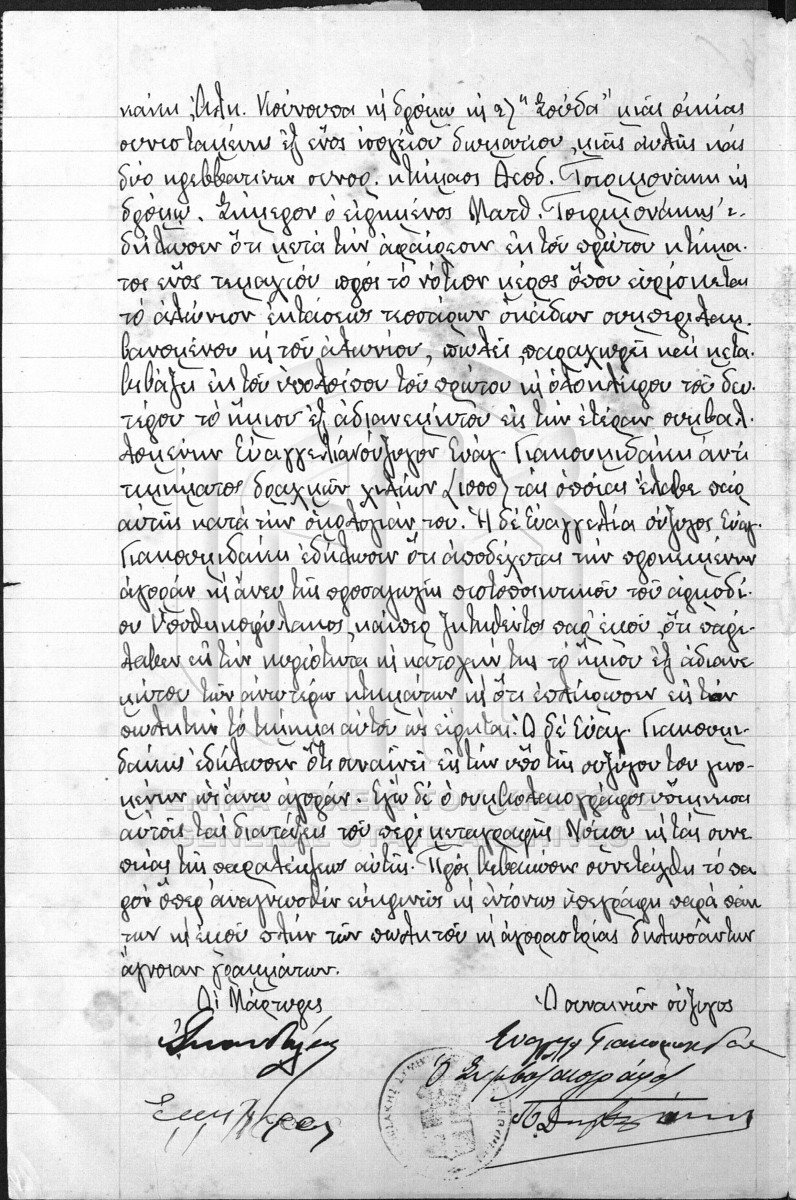 δρόμῳ κὴ εἰς "Σούδα" μιᾶς οἰκίας
συνισταμένης ἐξ ἑνὸς ἰσογείου δωματίου, μιᾶς αὐλῆς καὶ
δύο κρεββατίνων συνορ. κτήματος Θεοδ. κὴ
δρόμῳ. Σήμερον ὁ εἰρημένος Ματθ. ἐ-
δήλωσεν ὅτι μετὰ τὴν ἀφαίρεσιν ἐκ τοῦ πρώτου κτήμα-
τος ἑνὸς τεμαχίου πρὸς τὸ νότιον μέρος ὅπου εὑρίσκεται
τὸ ἁλώνιον ἐκτάσεως τεσσάρων ὀκάδων συμπεριλαμ-
βανομένου κὴ τοῦ ἁλωνίου, πωλεῖ, παραχωρεῖ καὶ μετα-
βιβάζει ἐκ τοῦ ὑπολοίπου τοῦ πρώτου κὴ ὁλοκλήρου τοῦ δευ-
τέρου τὸ ἥμισυ ἐξ ἀδιανεμήτου εἰς τὴν ἑτέραν συμβαλ-
λομένην Εὐαγγελίαν σύζυγον Εὐάγ. Γιακουμιδάκη ἀντὶ
τιμήματος δραχμῶν χιλίων (1000) τὰς ὁποίας ἔλαβε παρ'
αὐτῆς κατὰ τὴν ὁμολογίαν του. Ἡ δὲ Εὐαγγελία σύζυγος Εὐάγ.
Γιακουμιδάκη ἐδήλωσεν ὅτι ἀποδέχεται τὴν προκειμένην
ἀγορὰν κὴ ἄνευ τῆς προσαγωγῆς πιστοποιητικοῦ τοῦ ἁρμοδί-
ου Ὑποθηκοφύλακος, καίπερ ζητηθέντος παρ' ἐμοῦ, ὅτι παρέ-
λαβεν εἰς τὴν κυριότητα κὴ κατοχήν της τὸ ἥμισυ ἐξ ἀδιανε-
μήτου τῶν ἀνωτέρω κτημάτων κὴ ὅτι ἐπλήρωσεν εἰς τὸν
πωλητὴν τὸ τίμημα αὐτοῦ ὡς εἴρηται. Ὁ δὲ Εὐάγ. Γιακουμι-
δάκης ἐδήλωσεν ὅτι συναινεῖ εἰς τὴν ὑπὸ τῆς συζύγου του γενο-
μένην ὡς ἄνω ἀγοράν. Ἐγὼ δὲ ὁ συμβολαιογράφος ὑπέμνησα
αὐτοῖς τὰς διατάξεις τοῦ περὶ μεταγραφῆς Νόμου κὴ τὰς συνε-
πείας τῆς παραλείψεως αὐτῆς. Πρὸς βεβαίωσιν συνετάχθη τὸ πα-
ρὸν ὅπερ ἀναγνωσθὲν εὐκρινῶς κὴ ἐντόνως ὑπεγράφη παρὰ πάν-
των κὴ ἐμοῦ πλὴν τῶν πωλητοῦ κὴ ἀγοραστρίας δηλωσάντων
ἄγνοιαν γραμμάτων.
Οἱ Μάρτυρες Ὁ συναινῶν σύζυγος
Ὁ Συμβολαιογράφος